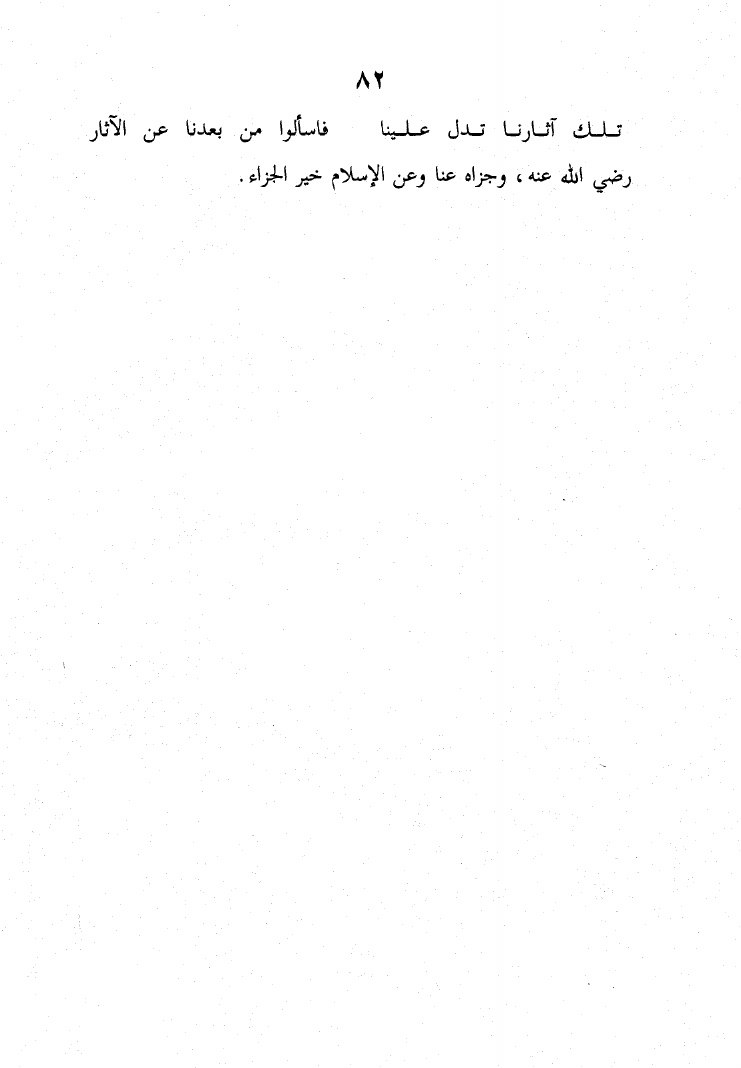 ٨٢
تـلـك آثـارنـا تـدل عـلـينا فاسألوا من بعدنا عن الآثار
رضي الله عنه ، وجزاه عنا وعن الإسلام خير الجزاء .